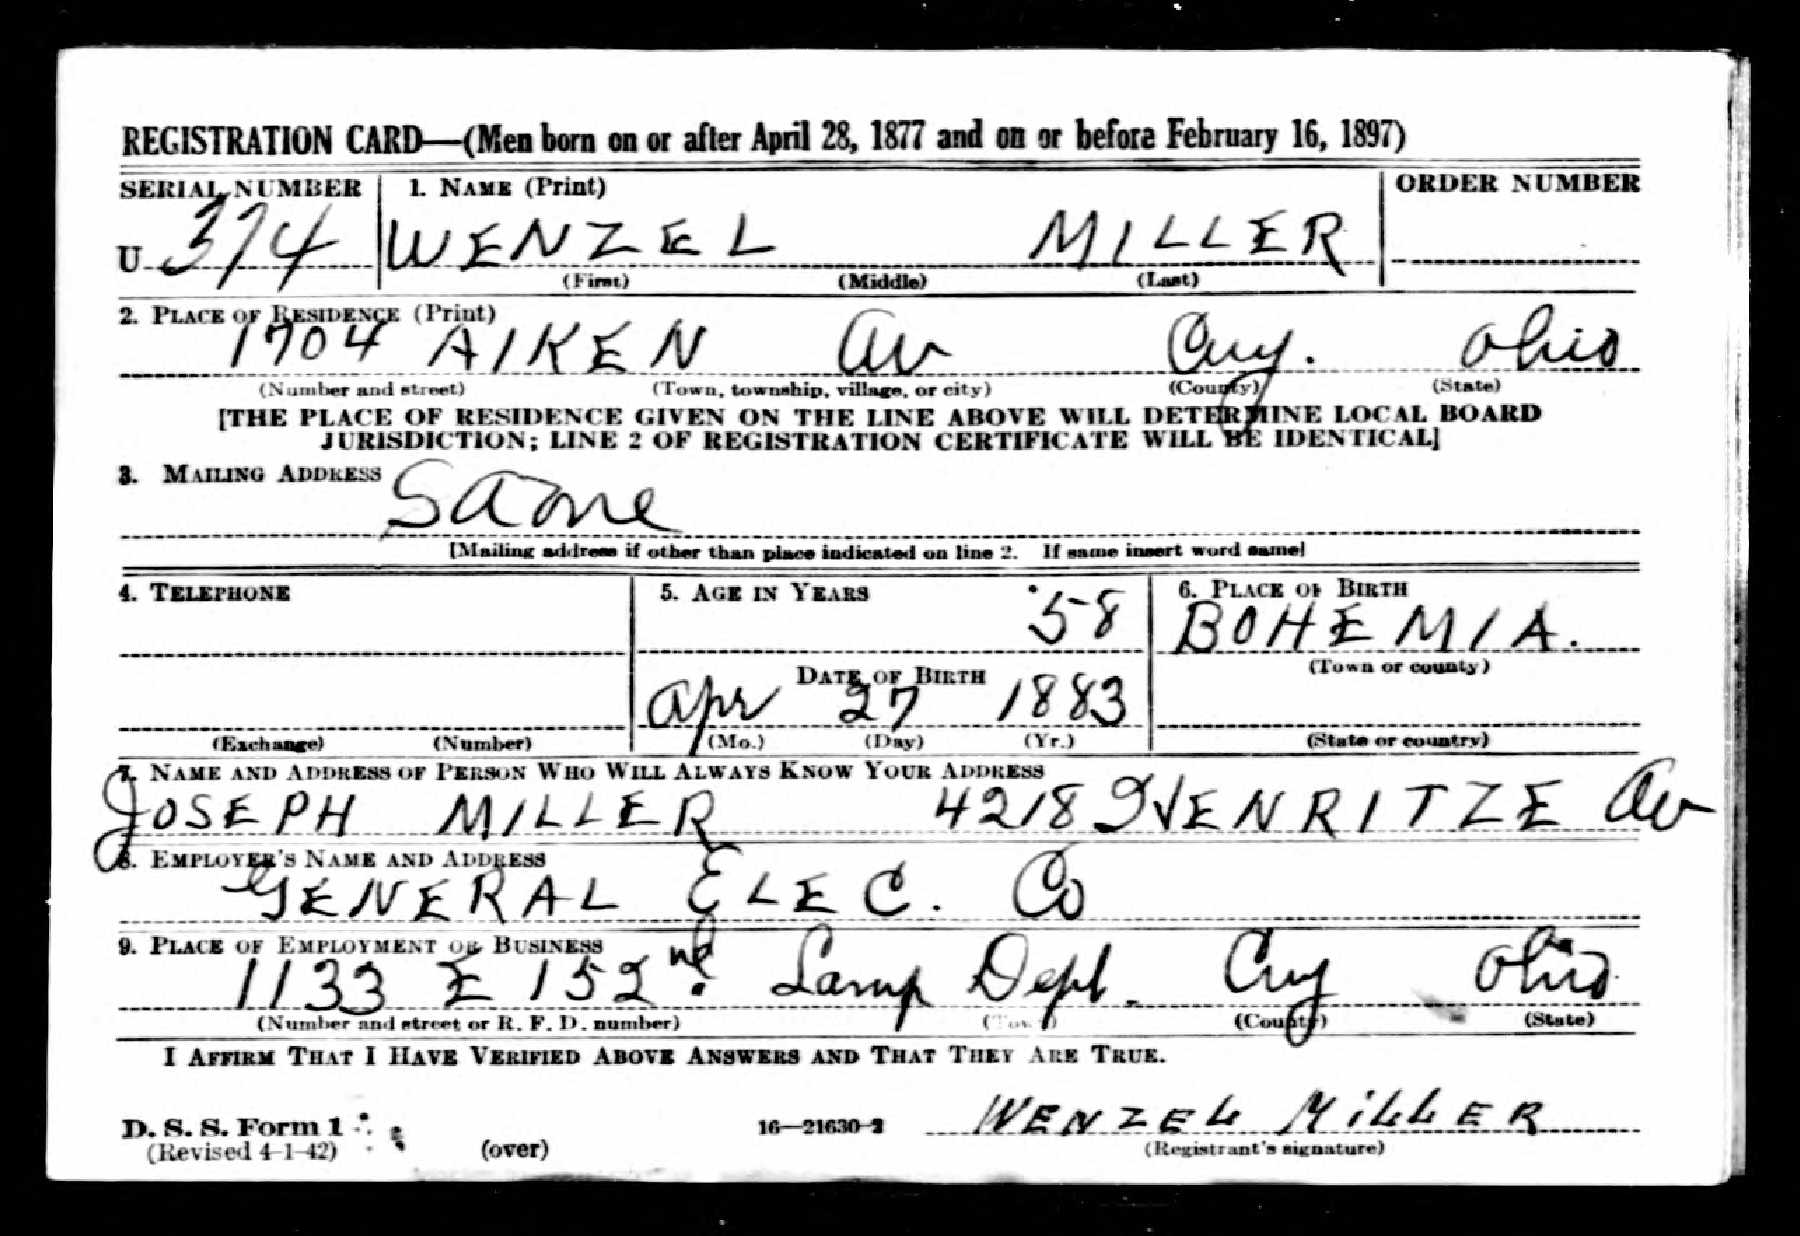 REGISTRATION CARD—(Men born on or after April 28, 1877 and on or before February 16, 1897)
SERIAL NUMBER 1. NAME (Print) ORDER NUMBER
U 374 WENZEL MILLER
(First) (Middle) (Last)
2. PLACE OF RESIDENCE (Print)
1704 AIKEN Av Cuy. Ohio
(Number and street) (Town, township, village, or city) (County) (State)
[THE PLACE OF RESIDENCE GIVEN ON THE LINE ABOVE WILL DETERMINE LOCAL BOARD
JURISDICTION; LINE 2 OF REGISTRATION CERTIFICATE WILL BE IDENTICAL]
3. MAILING ADDRESS
Same
[Mailing address if other than place indicated on line 2. If same insert word same]
4. TELEPHONE 5. AGE IN YEARS 6. PLACE OF BIRTH
58 BOHEMIA.
DATE OF BIRTH (Town or county)
Apr 27 1883
(Exchange) (Number) (Mo.) (Day) (Yr.) (State or country)
7. NAME AND ADDRESS OF PERSON WHO WILL ALWAYS KNOW YOUR ADDRESS
JOSEPH MILLER 4218 HENRITZE Av
8. EMPLOYER'S NAME AND ADDRESS
GENERAL ELEC. Co
9. PLACE OF EMPLOYMENT OR BUSINESS
1133 E 152nd Lamp Dept. Cuy Ohio
(Number and street or R. F. D. number) (Town) (County) (State)
I AFFIRM THAT I HAVE VERIFIED ABOVE ANSWERS AND THAT THEY ARE TRUE.
WENZEL MILLER
D. S. S. Form 1 16—21630-2
(Revised 4-1-42) (over) (Registrant's signature)